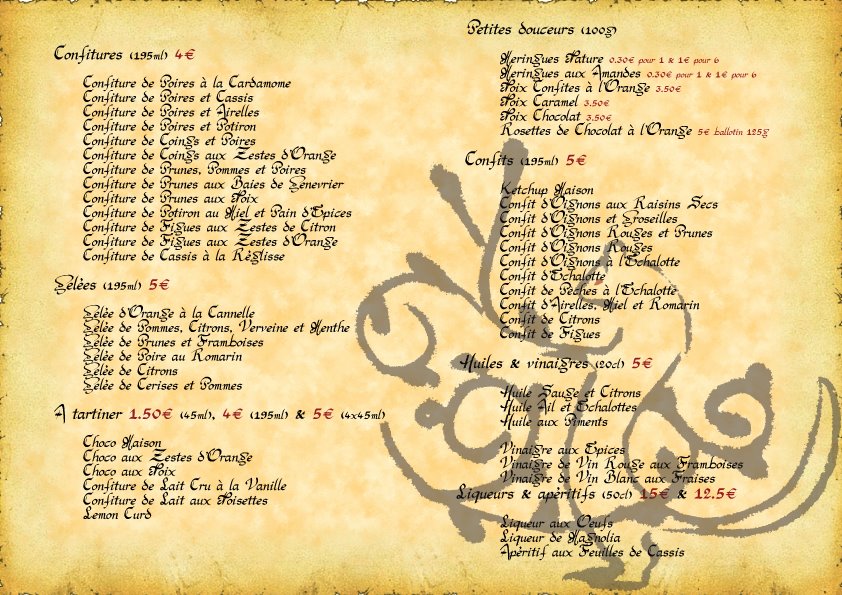 Confitures (195ml) 4€
Confiture de Poires à la Cardamome
Confiture de Poires et Cassis
Confiture de Poires et Airelles
Confiture de Poires et Potiron
Confiture de Coings et Poires
Confiture de Coings aux Zestes d'Orange
Confiture de Prunes, Pommes et Poires
Confiture de Prunes aux Baies de Genevrier
Confiture de Prunes aux Noix
Confiture de Potiron au Miel et Pain d'Epices
Confiture de Figues aux Zestes de Citron
Confiture de Figues aux Zestes d'Orange
Confiture de Cassis à la Réglisse
Gelées (195ml) 5€
Gelée d'Orange à la Cannelle
Gelée de Pommes, Citrons, Verveine et Menthe
Gelée de Prunes et Framboises
Gelée de Poire au Romarin
Gelée de Citrons
Gelée de Cerises et Pommes
A tartiner 1.50€ (45ml), 4€ (195ml) & 5€ (4x45ml)
Choco Maison
Choco aux Zestes d'Orange
Choco aux Noix
Confiture de Lait Cru à la Vanille
Confiture de Lait aux Noisettes
Lemon Curd
Petites douceurs (100g)
Meringues Nature 0.30€ pour 1 & 1€ pour 6
Meringues aux Amandes 0.30€ pour 1 & 1€ pour 6
Noix Confites à l'Orange 3.50€
Noix Caramel 3.50€
Noix Chocolat 3.50€
Rosettes de Chocolat à l'Orange 5€ ballotin 125g
Confits (195ml) 5€
Ketchup Maison
Confit d'Oignons aux Raisins Secs
Confit d'Oignons et Groseilles
Confit d'Oignons Rouges et Prunes
Confit d'Oignons Rouges
Confit d'Oignons à l'Echalotte
Confit d'Echalotte
Confit de Pêches à l'Echalotte
Confit d'Airelles, Miel et Romarin
Confit de Citrons
Confit de Figues
Huiles & vinaigres (20cl) 5€
Huile Sauge et Citrons
Huile Ail et Echalottes
Huile aux Piments
Vinaigre aux Epices
Vinaigre de Vin Rouge aux Framboises
Vinaigre de Vin Blanc aux Fraises
Liqueurs & apéritifs (50cl) 15€ & 12.5€
Liqueur aux Oeufs
Liqueur de Magnolia
Apéritif aux Feuilles de Cassis